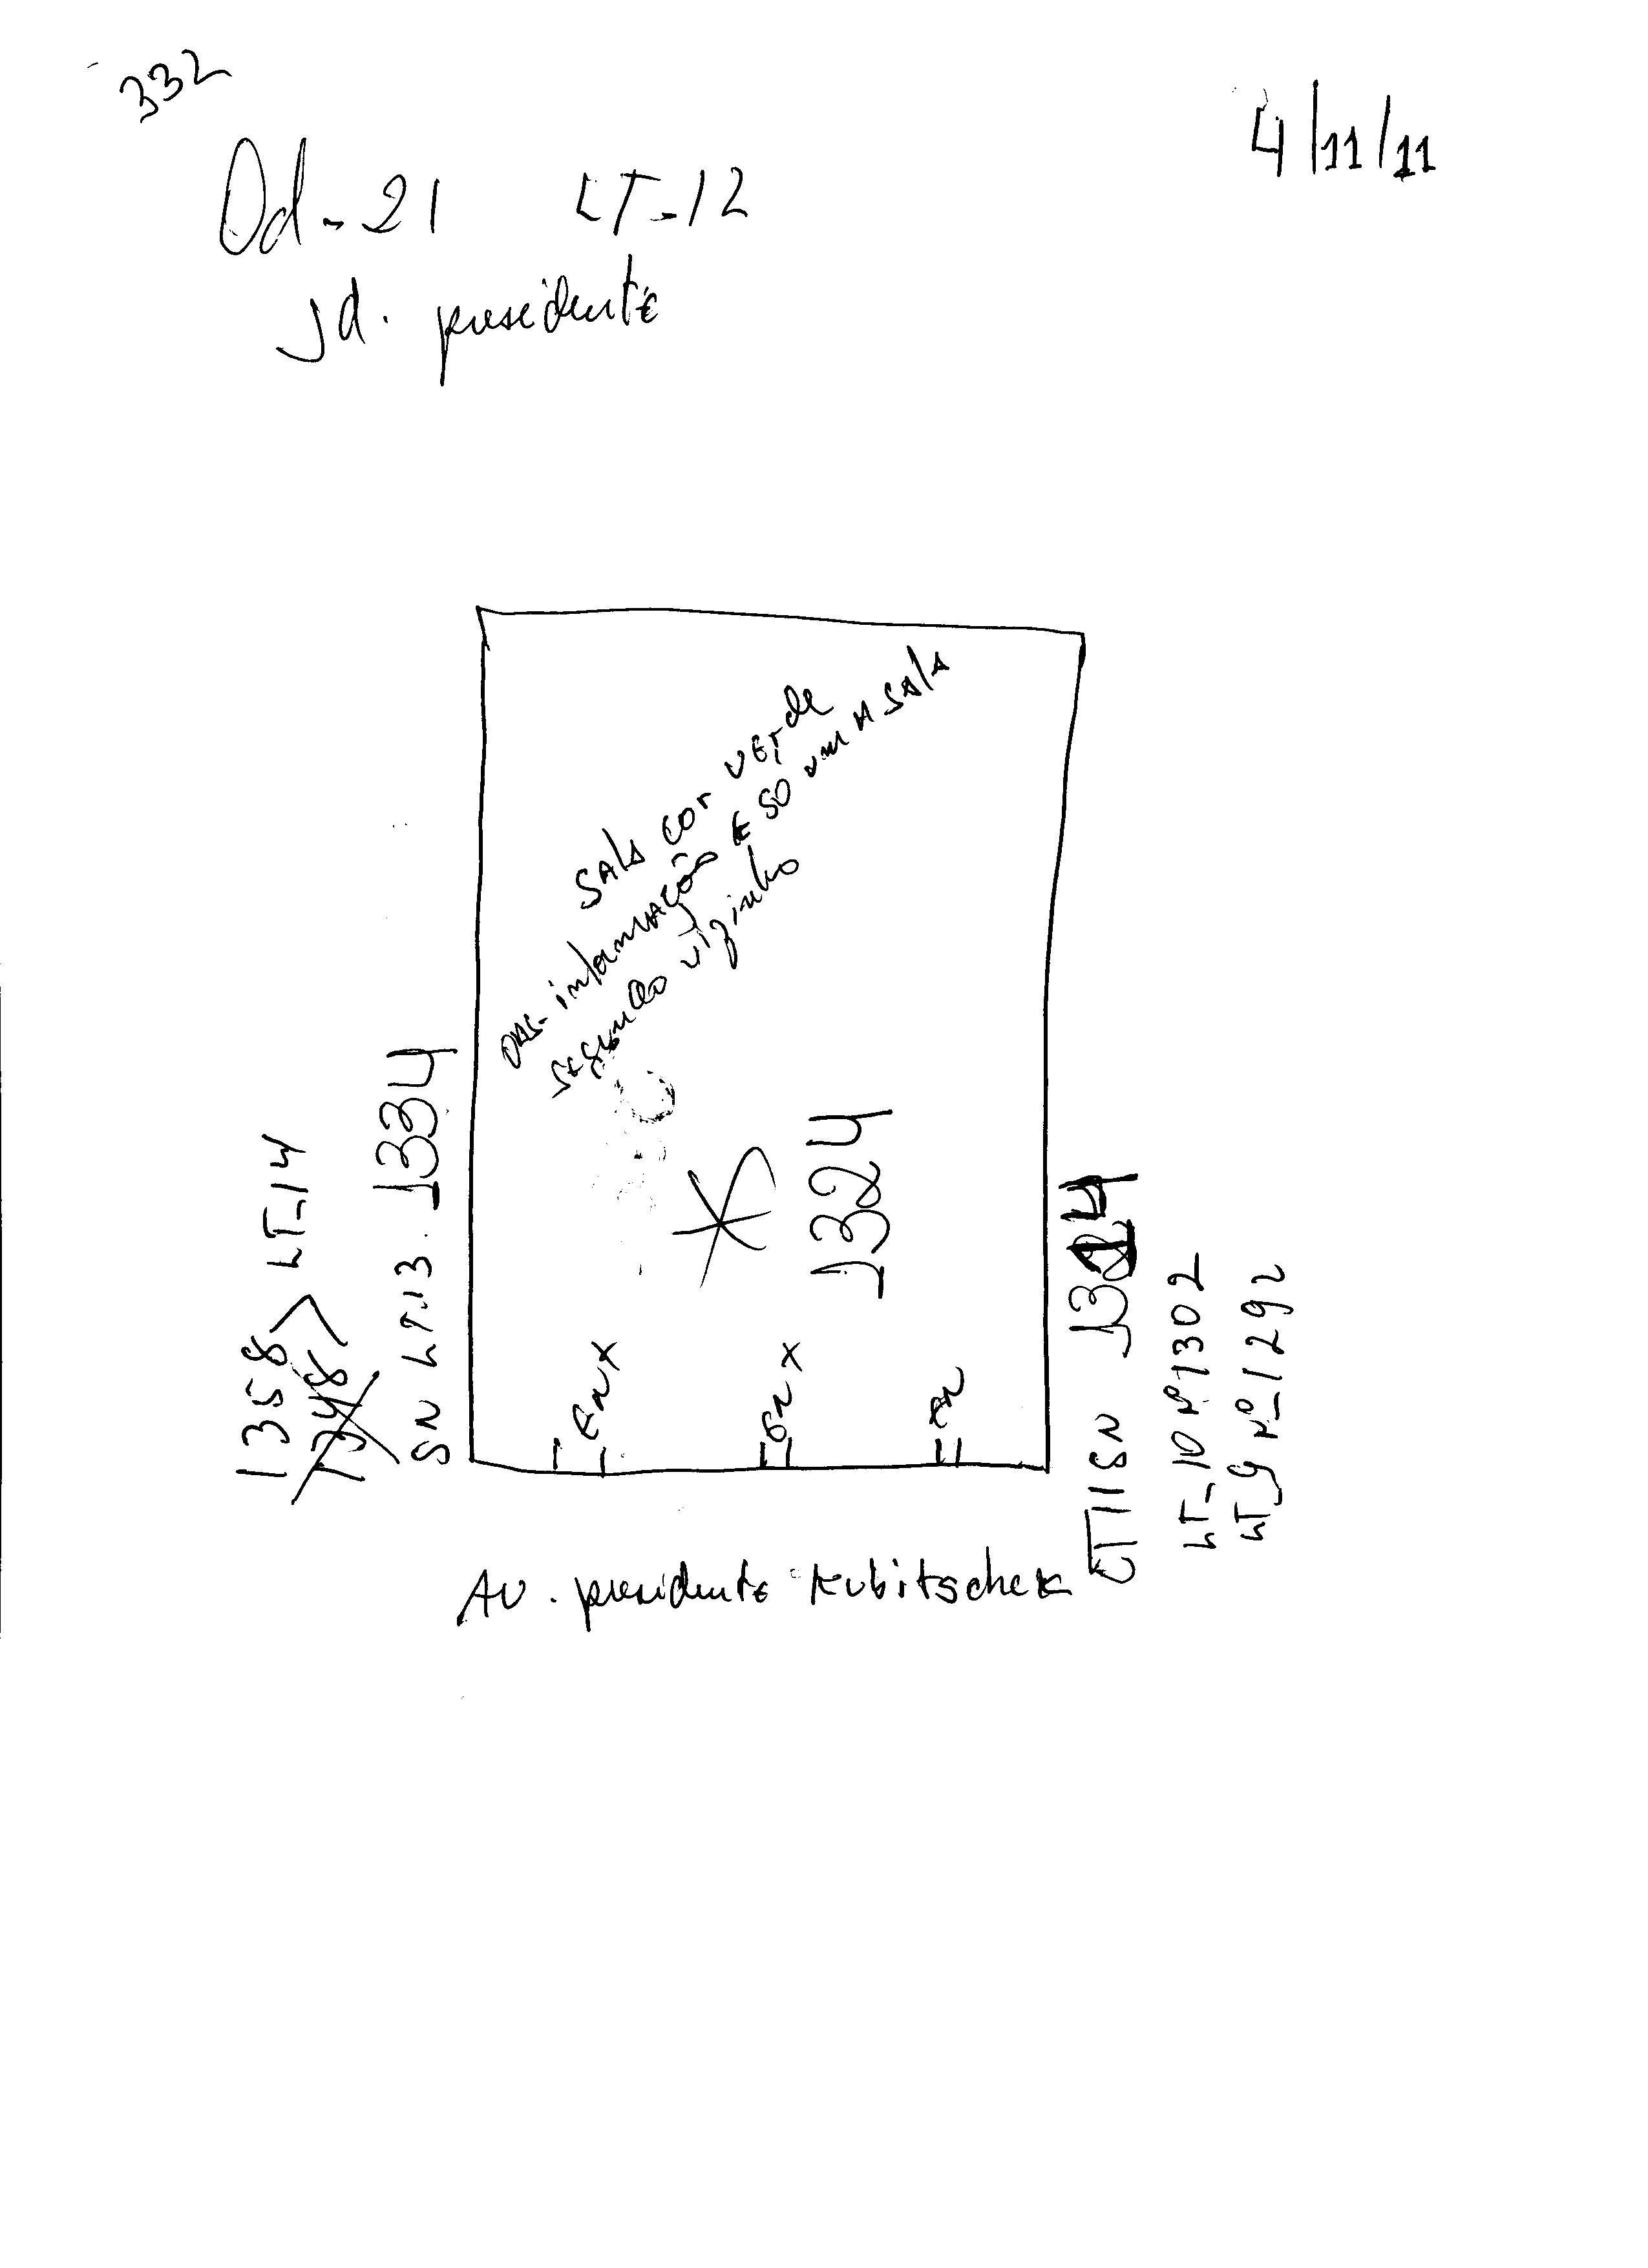 332
4/11/11
Qd-21 LT-12
Jd. presidente
SALA cor verde
OBS- informação E SO umA SALA
segundo vizinho
1324
EN X
EN X
EN
1358 > LT-14
1348
SN LT.13. 1334
LT11SN 1314
LT-10 Nº 1302
LT-9 Nº-1292
AV. presidente Kubitschek